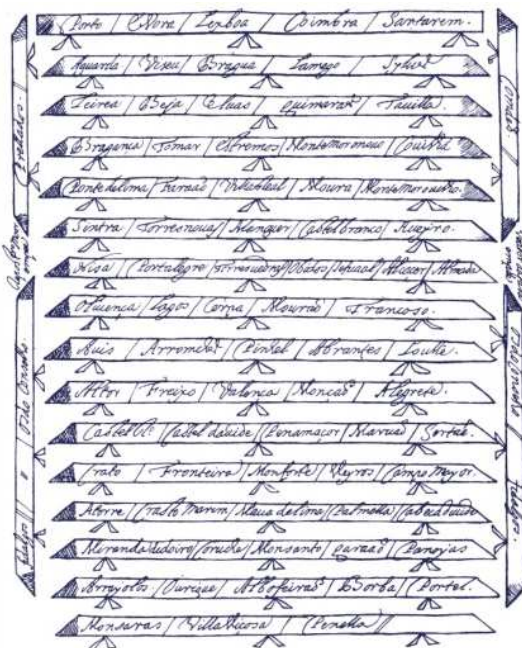 Porto / Evora / Lexboa / Coimbra / Santarem.
Aguarda / Viseu / Bragua / Lamego / Sylves
Leirea / Beja / Eluas / guimaraes / Tauilla.
Bragança / Tomar / estremos / Montemoronouo / Couilha
Pontedelima / Faraão / VillaReal / Moura / Montemorouelho.
Sintra / Torresnouas / Alenquer / Castelbranco / Aueyro.
Nisa / Portalegre / / Obidos / Setuual / Alcacer / Almada
Oliuença / Lagos / / Mourão / Francoso.
Auis / / Pinhel / Abrantes / Loulle.
Alter / Freixo / Valença / Monção / Alegrete.
/ Casteldauide / Penamacor / Maruão / Sertãe.
Crato / Fronteira / Monforte / Veyros / Campo Mayor.
Atorre / Crastomarim / / Palmella / Cabecadeuide
Miranda / Coruche / Monsanto / / Panojas
Arrayolos / Ourique / Albofeira / Borba / Portel.
Monsaras / VillaViçosa / Penella //
Prelados.
Condes.
do Conselho.
fidalgos